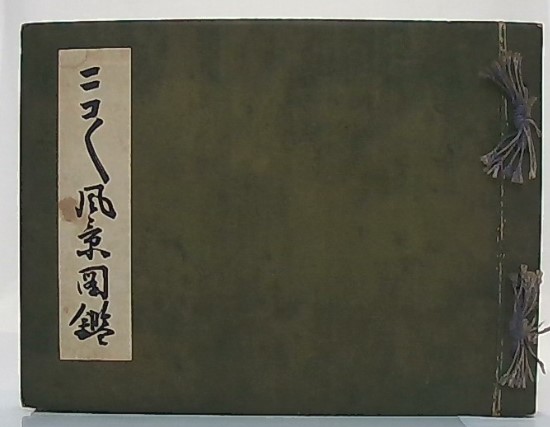 ニコ〱風景図鑑